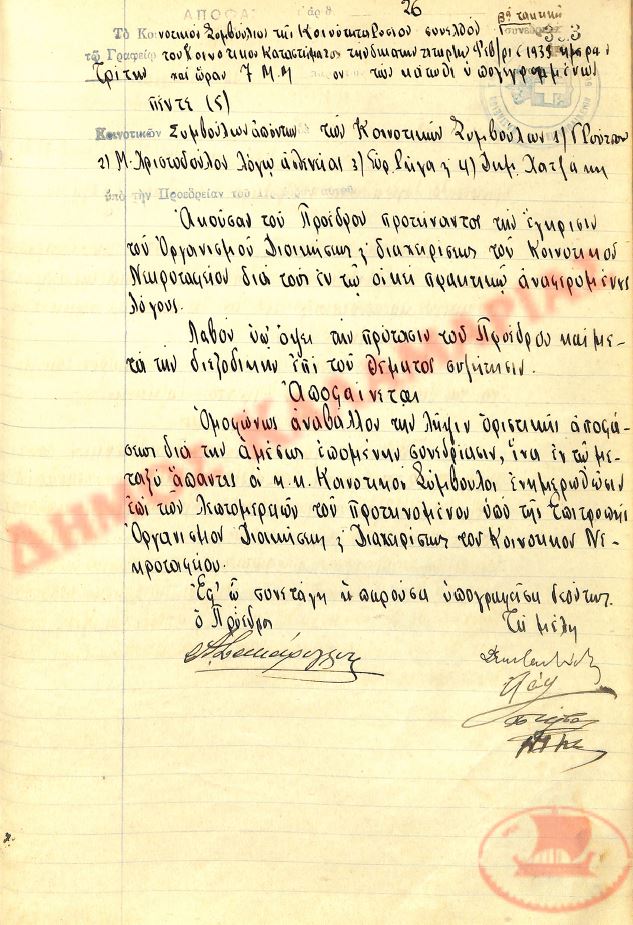 ΑΠΟΦΑ ἀρ θ. 26
βα τακτική
συνεδρία
333
Τὸ Κοινοτικὸν Συμβούλιον τῆς Κοινότητος Ρυσίου συνελθὸν
τῷ Γραφείῳ τοῦ Κοινοτικοῦ Καταστήματος τὴν δεκάτην τετάρτην Φεβ/ρίου 1939 ἡμέραν
Τρίτην καὶ ὥραν 7 Μ.Μ. τῶν κάτωθι ὑπογεγραμμένων
πέντε (5)
Κοινοτικῶν Συμβούλων ἀπόντων τῶν Κοινοτικῶν Συμβούλων 1)
2) Μ. Χριστοδούλου λόγῳ ἀσθενείας 3) 4) Δημ. Χατζάκη
ὑπὸ τὴν Προεδρείαν τοῦ
Ἀκοῦσαν τοῦ Προέδρου προτείναντος τὴν ἔγκρισιν
τοῦ Ὀργανισμοῦ Διοικήσεως & διαχειρίσεως τοῦ Κοινοτικοῦ
Νεκροταφείου διὰ τοὺς ἐν τῷ οἰκεί πρακτικῷ ἀναφερομένους
λόγους.
Λαβὸν ὑπ' ὄψει τὴν πρότασιν τοῦ Προέδρου καὶ με-
τὰ τὴν διεξοδικὴν ἐπὶ τοῦ θέματος συζήτησιν.
Ἀποφαίνεται
Ὁμοφώνως ἀναβάλλον τὴν λῆψιν ὁριστικῆς ἀποφά-
σεως διὰ τὴν ἀμέσως ἑπομένην συνεδρίασιν, ἵνα ἐν τῷ με-
ταξὺ ἅπαντες οἱ κ.κ. Κοινοτικοὶ Σύμβουλοι ἐνημερωθῶσιν
ἐπὶ τῶν λεπτομερειῶν τοῦ προτεινομένου ὑπὸ τῆς Ἐπιτροπῆς
Ὀργανισμοῦ Διοικήσεως & Διαχειρίσεως τοῦ Κοινοτικοῦ Νε-
κροταφείου.
Ἐφ' ᾧ συνετάγη ἡ παροῦσα ὑπογραφεῖσα δεόντως.
ὁ Πρόεδρος Τὰ μέλη
ΔΗΜΟΣ ΚΑΛΑΜΑΡΙΑΣ